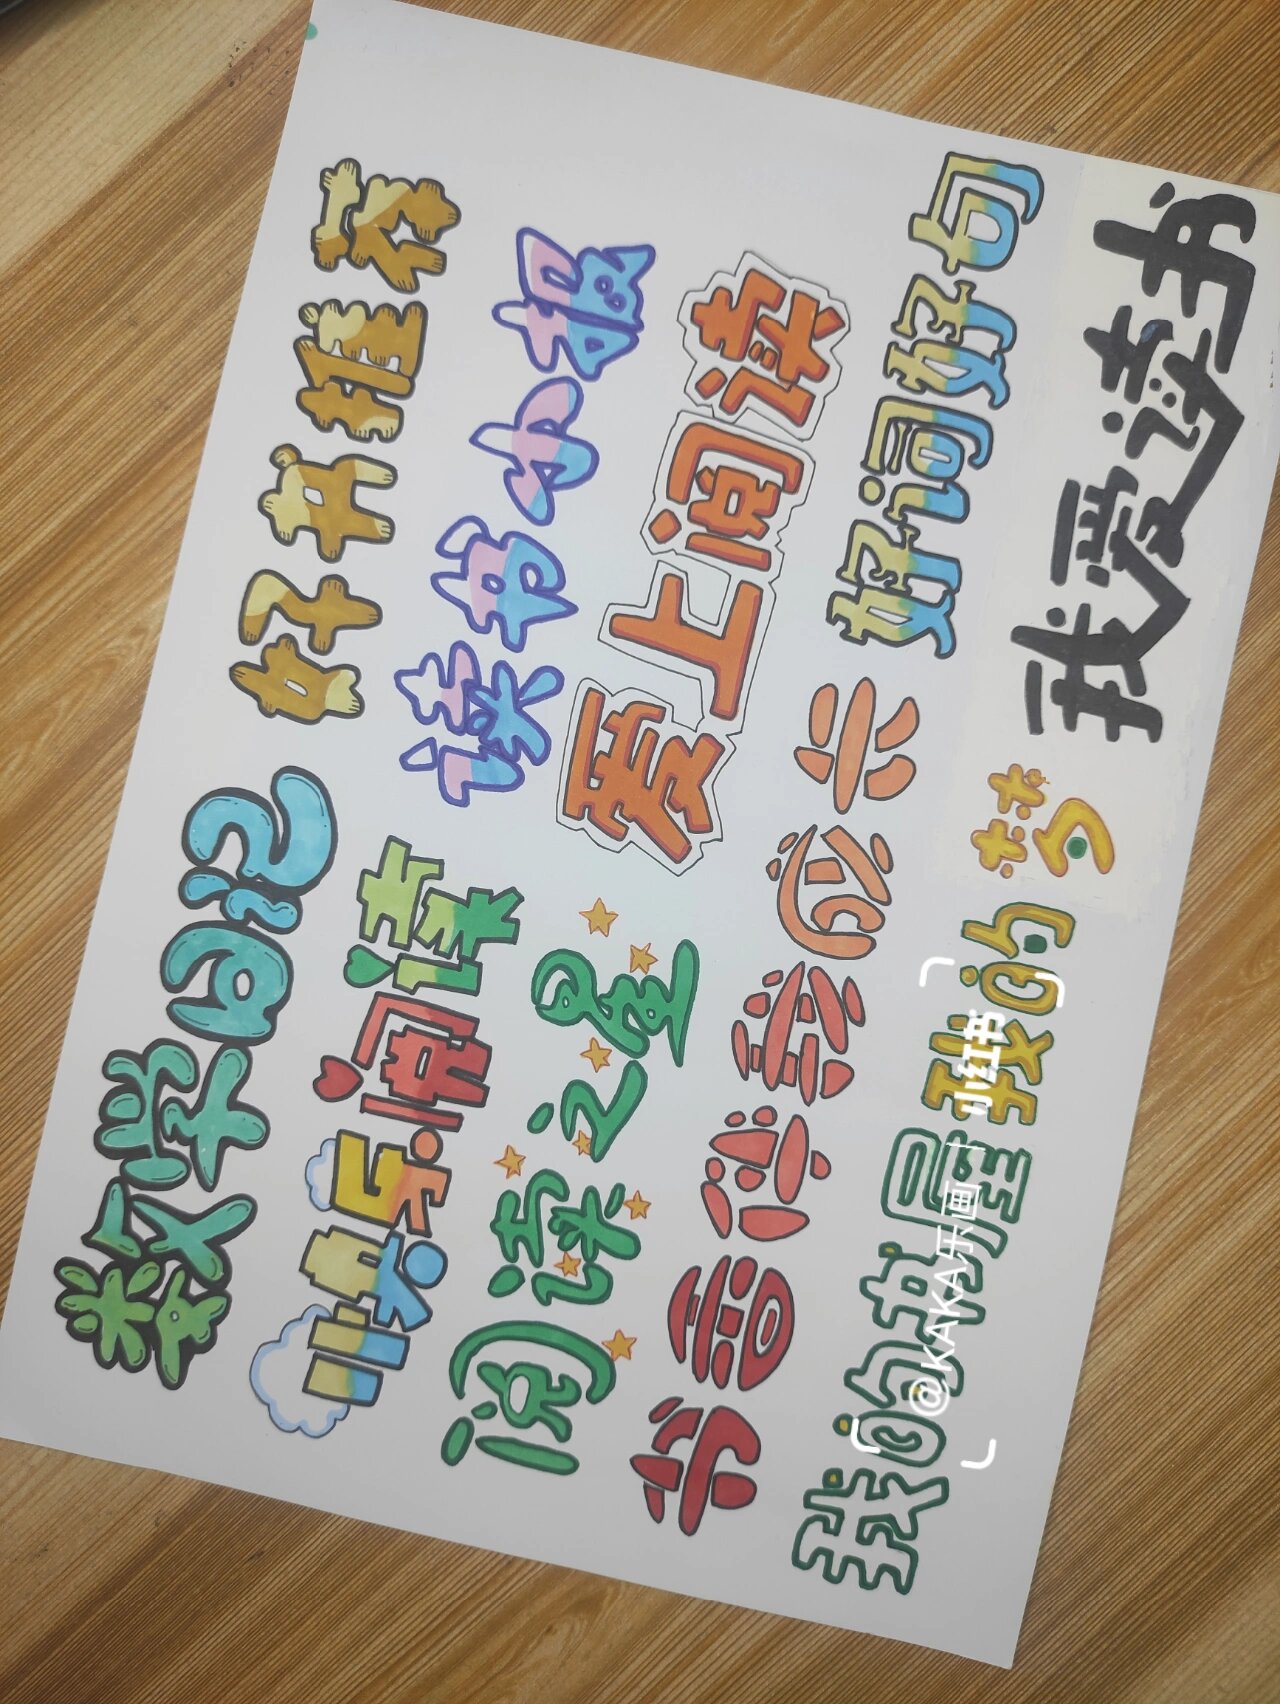 数学日记
好书推荐
快乐阅读
读书小报
阅读之星
爱上阅读
书香传梦公益
好词好句
我的书屋我的梦
我爱读书
小红书
@KAKA乐画